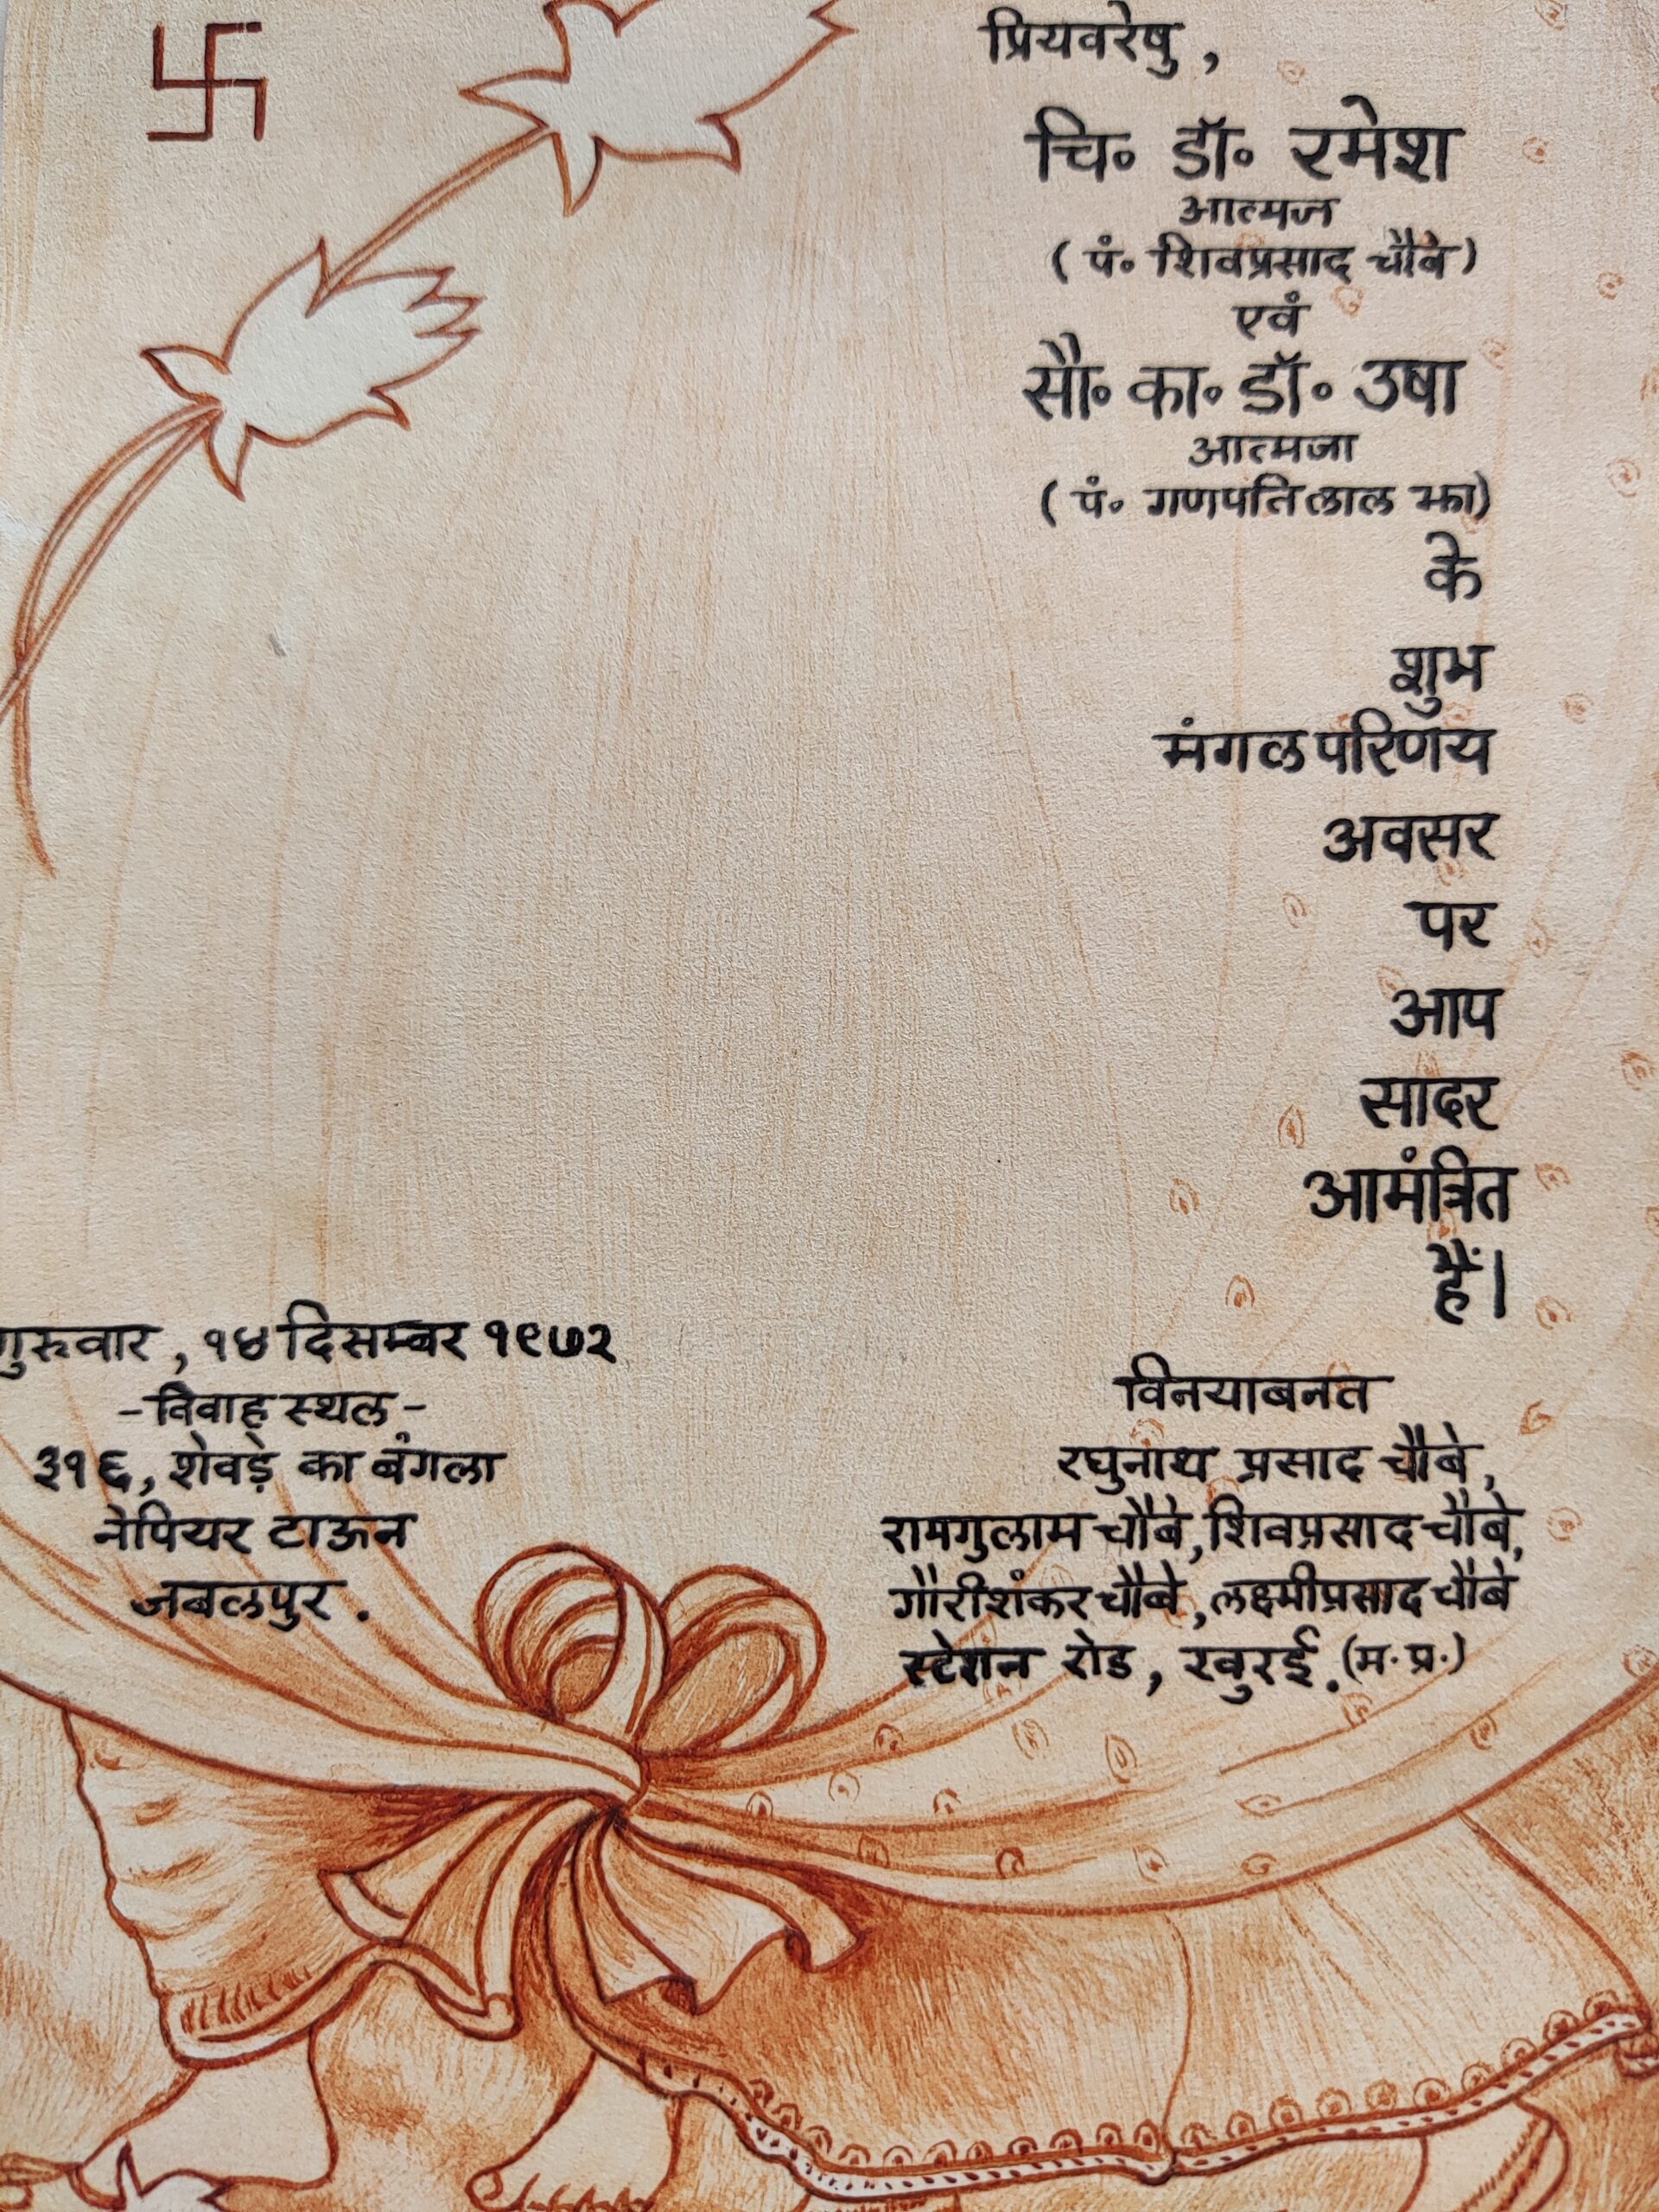 प्रियवरेषु,
चि॰ डॉ॰ रमेश
आत्मज
(पं॰ शिवप्रसाद चौबे)
एवं
सौ॰ का॰ डॉ॰ उषा
आत्मजा
(पं॰ गणपतिलाल झा)
के
शुभ
मंगल परिणय
अवसर
पर
आप
सादर
आमंत्रित
हैं।
गुरूवार, १४ दिसम्बर १९७२
-विवाह स्थल-
३१६, शेवड़े का बंगला
नेपियर टाऊन
जबलपुर.
विनयाबनत
रघुनाथ प्रसाद चौबे,
रामगुलाम चौबे, शिवप्रसाद चौबे,
गौरीशंकर चौबे, लक्ष्मीप्रसाद चौबे
स्टेशन रोड, खुरई. (म.प्र.)